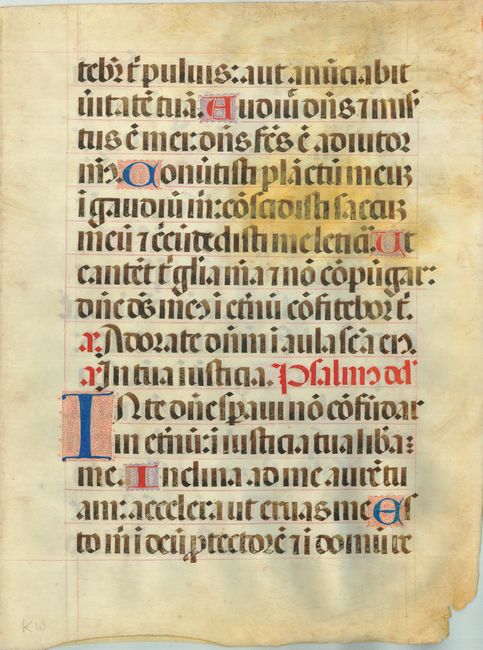 tebr̄ t̄ puluis: aut anūciabit
ūitatē tuā. Audiuͥ dn̄s ⁊ miſʳ
tus ē mei: dn̄s fc̄s ē adiutor
m̄s. Conūtisti plāctū meuʒ
ī gaudiū m̄: cōſcidisti saccuʒ
meū ⁊ c̄cūdedisti me leticīa. Ut
cantēt t̄ gl̄ia m̄a ⁊ nō cōpūgar:
dn̄e ds̄ meꝰ ī etn̄ū cōfitebor t̄.
a᷒. Adorate dn̄m ī aula sc̄a eiꝰ.
a᷒. In tua iusticia. Psalmꝰ dd͛
IN te dn̄e speraui nō cōfūdar
in etn̄ū: ī iusticia tua liba᷒
me. Inclina ad me aurē tu
am: accelera ut eruas me Es
to m̄ ī deū ꝓtectorē ⁊ ī domū re
KW